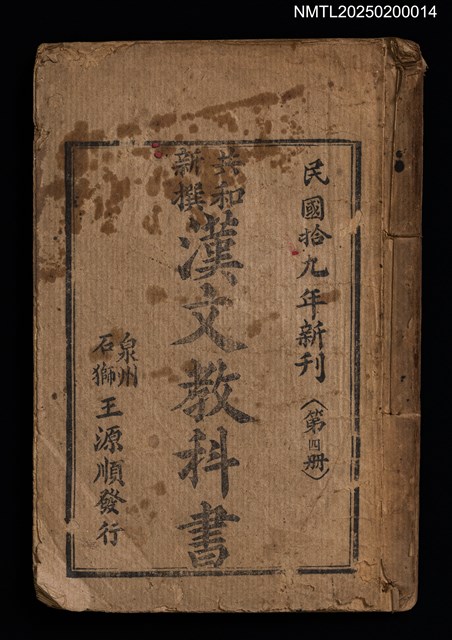 NMTL20250200014
民國拾九年新刊(第四册)
共和新撰
漢文教科書
泉州石獅
王源順發行